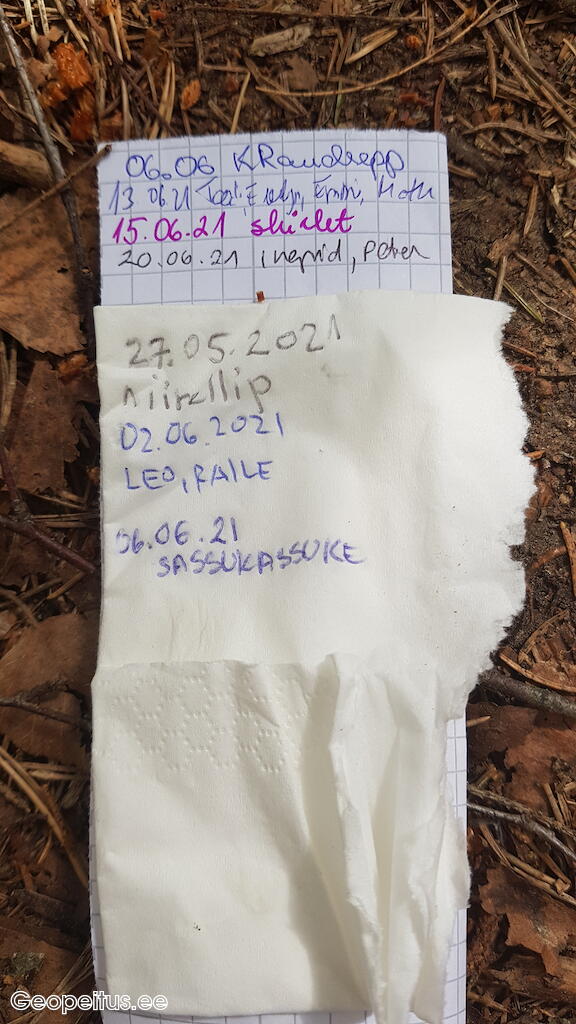 06.06 KRaudsepp
13.06.21
15.06.21 shirlet
20.06.21 ingrid, Peter
27.05.2021
02.06.2021
LEO, RAILE
06.06.21
SASSUKASSUKE
Geopeitus.ee